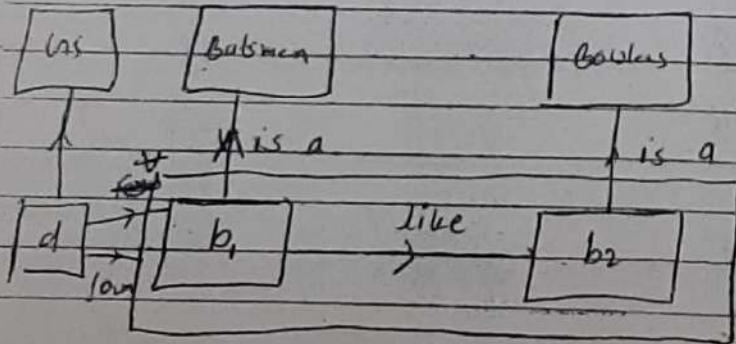 GS Batsmen Bowlers
is a is a
∀
d b1 like b2
form